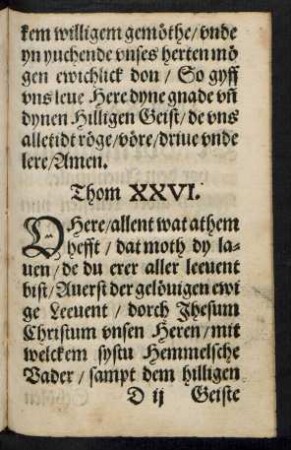 kem willigem gemöthe / vnde
yn yuchende vnses herten mö
gen ewichlick don / So gyff
vns leue Here dyne gnade vñ
dynen Hilligen Geist / de vns
alletidt röge / vöre / driue vnde
lere / Amen.
Thom XXVI.
O Here / allent wat athem
hefft / dat moth dy la-
uen / de du erer aller leeuent
bist / Auerst der gelöuigen ewi
ge Leeuent / dorch Jhesum
Christum vnsen Heren / mit
welckem systu Hemmelsche
Vader / sampt dem hilligen
D ij Geiste